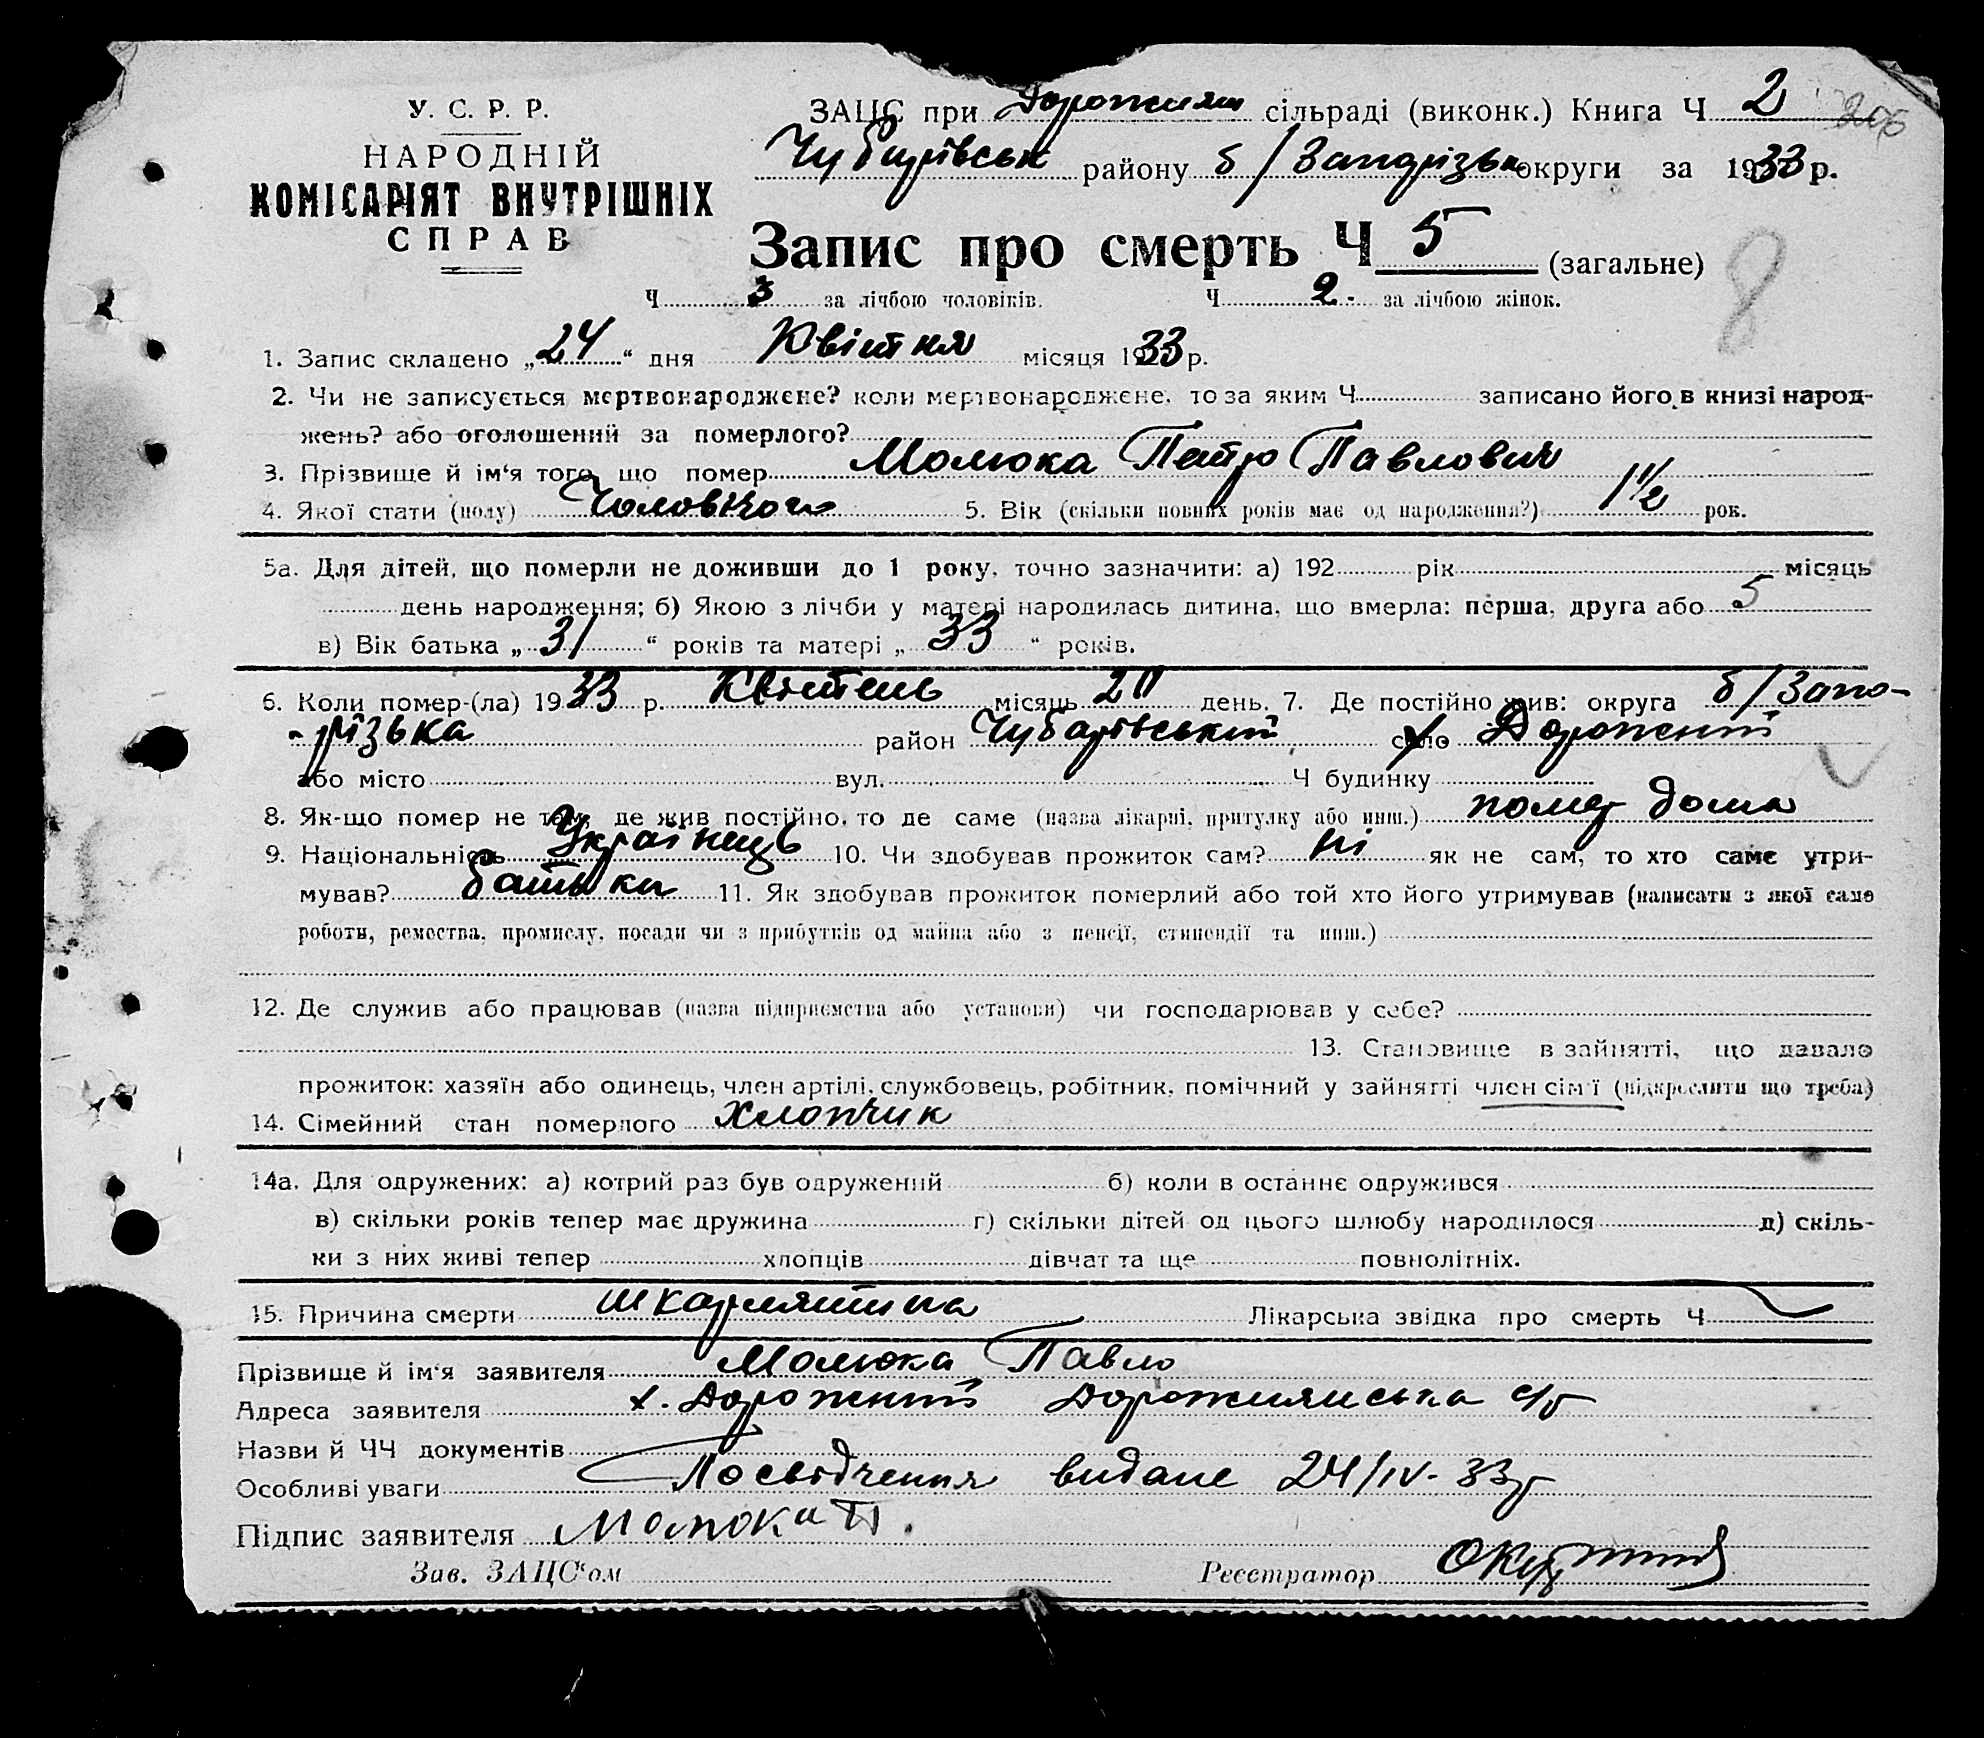 У. С. Р. Р.
НАРОДНІЙ
КОМІСАРІЯТ ВНУТРІШНІХ
СПРАВ
ЗАЦС при Дорожнян сільраді (виконк.) Книга Ч 2 206
Чубарівськ району б/Запорізьк округи за 1933 р.
Запис про смерть Ч 5 (загальне)
8
Ч 3 за лічбою чоловіків. Ч 2. за лічбою жінок.
1. Запис складено „24“ дня Квітня місяця 1933 р.
2. Чи не записується мертвонароджене? коли мертвонароджене, то за яким Ч записано його в книзі народ-
жень? або оголошений за померлого?
3. Прізвище й ім‘я того, що помер Молюка Петро Павлович
4. Якої стати (полу) Чоловічого 5. Вік (скільки повних років має од народження?) 1 1/2 рок.
5а. Для дітей, що померли не доживши до 1 року, точно зазначити: а) 192 рік місяць
день народження; б) Якою з лічби у матері народилась дитина, що вмерла: перша, друга або 5
в) Вік батька „31“ років та матері „33“ років.
6. Коли помер-(ла) 1933 р. Квітень місяць 20 день. 7. Де постійно жив: округа б/Запо-
-різька район Чубарівський х село Дорожній
або місто вул. Ч будинку
8. Як-що помер не там, де жив постійно, то де саме (назва лікарні, притулку або инш.) помер дома
9. Національність Українець 10. Чи здобував прожиток сам? ні як не сам, то хто саме утри-
мував? батьки 11. Як здобував прожиток померлий або той хто його утримував (написати з якої саме
роботи, ремества, промислу, посади чи з прибутків од майна або з пенсії, стипендії та инш.)
12. Де служив або працював (назва підприємства або установи) чи господарював у себе?
13. Становище в зайнятті, що давало
прожиток: хазяїн або одинець, член артілі, службовець, робітник, помічний у зайнятті член сім‘ї (підкреслити що треба)
14. Сімейний стан померлого хлопчик
14а. Для одружених: а) котрий раз був одружений б) коли в останнє одружився
в) скільки років тепер має дружина г) скільки дітей од цього шлюбу народилося д) скіль-
ки з них живі тепер хлопців дівчат та ще повнолітніх.
15. Причина смерти шкарлятина Лікарська звідка про смерть Ч
Прізвище й ім‘я заявителя Молюка Павло
Адреса заявителя х. Дорожній Дорожнянська с/р
Назви й ЧЧ документів
Особливі уваги Посвідчення видане 24/IV-33р
Підпис заявителя Молюка П.
Зав. ЗАЦС‘ом Реєстратор